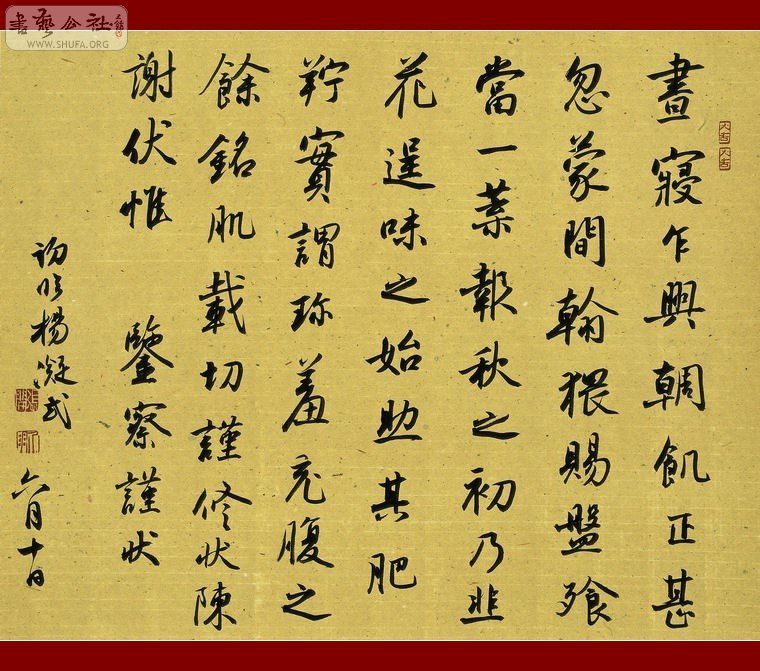 書藝公社
WWW.SHUFA.ORG
晝寢乍興輖飢正甚
忽蒙間翰猥賜盤飧
當一葉報秋之初乃韭
花逞味之始助其肥
羜實謂珍羞充腹之
餘銘肌載切謹修狀陳
謝伏惟 鑒察謹狀
临楊凝式
六月十日